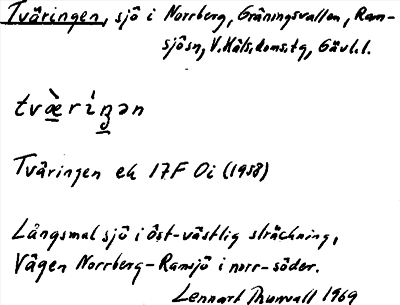 Tväringen, sjö i Norrberg, Gräningsvallen, Ram-
sjösn, V. Häls. doms. tg, Gävl. l.
tvæ̀ri´ŋən
Tväringen ek 17F 0i (1958)
Långsmal sjö i öst-västlig sträckning,
Vägen Norrberg-Ramsjö i norr-söder.
Lennart Thunvall 1969